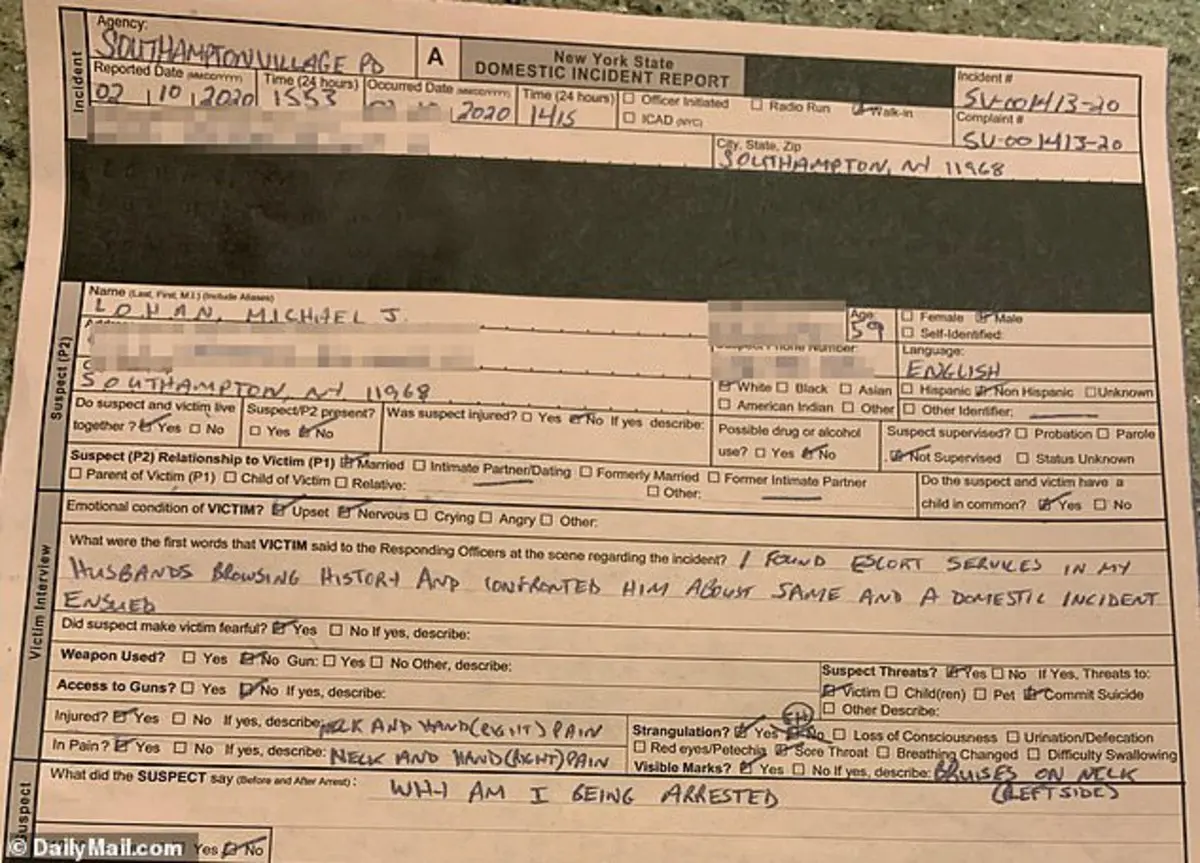 Agency:
SOUTHAMPTON VILLAGE PD
A
New York State
DOMESTIC INCIDENT REPORT
Incident #
SV-001413-20
Incident
Reported Date (MM/DD/YYYY) Time (24 hours) Occurred Date (MM/DD/YYYY) Time (24 hours) ☐ Officer Initiated ☐ Radio Run ☑ Walk-in
02 10 2020 1553 2020 1415 ☐ ICAD (NYC)
Complaint #
SV-001413-20
City, State, Zip
SOUTHAMPTON, NY 11968
Suspect (P2)
Name (Last, First, M.I.) (Include Aliases)
LOHAN, MICHAEL J.
Age:
59
☐ Female ☑ Male
☐ Self-Identified:
Phone Number:
Language:
ENGLISH
SOUTHAMPTON, NY 11968
☑ White ☐ Black ☐ Asian ☐ Hispanic ☑ Non Hispanic ☐ Unknown
☐ American Indian ☐ Other ☐ Other Identifier:
Do suspect and victim live together? ☑ Yes ☐ No
Suspect/P2 present? ☐ Yes ☑ No
Was suspect injured? ☐ Yes ☑ No If yes, describe:
Possible drug or alcohol use? ☐ Yes ☑ No
Suspect supervised? ☐ Probation ☐ Parole
☑ Not Supervised ☐ Status Unknown
Suspect (P2) Relationship to Victim (P1) ☑ Married ☐ Intimate Partner/Dating ☐ Formerly Married ☐ Former Intimate Partner
☐ Parent of Victim (P1) ☐ Child of Victim ☐ Relative: ☐ Other:
Do the suspect and victim have a child in common? ☑ Yes ☐ No
Victim Interview
Emotional condition of VICTIM? ☑ Upset ☑ Nervous ☐ Crying ☐ Angry ☐ Other:
What were the first words that VICTIM said to the Responding Officers at the scene regarding the incident? I FOUND ESCORT SERVICES IN MY
HUSBANDS BROWSING HISTORY AND CONFRONTED HIM ABOUT SAME AND A DOMESTIC INCIDENT
ENSUED
Did suspect make victim fearful? ☑ Yes ☐ No If yes, describe:
Weapon Used? ☐ Yes ☑ No Gun: ☐ Yes ☐ No Other, describe:
Suspect Threats? ☑ Yes ☐ No If Yes, Threats to:
Access to Guns? ☐ Yes ☑ No If yes, describe:
☑ Victim ☐ Child(ren) ☐ Pet ☑ Commit Suicide
☐ Other Describe:
Injured? ☑ Yes ☐ No If yes, describe: NECK AND HAND (RIGHT) PAIN
EH
Strangulation? ☑ Yes ☑ No ☐ Loss of Consciousness ☐ Urination/Defecation
In Pain? ☑ Yes ☐ No If yes, describe: NECK AND HAND (RIGHT) PAIN
☐ Red eyes/Petechia ☑ Sore Throat ☐ Breathing Changed ☐ Difficulty Swallowing
Visible Marks? ☑ Yes ☐ No If yes, describe: BRUISES ON NECK
(LEFT SIDE)
Suspect
What did the SUSPECT say (Before and After Arrest): WHY AM I BEING ARRESTED
Yes ☑ No
© DailyMail.com